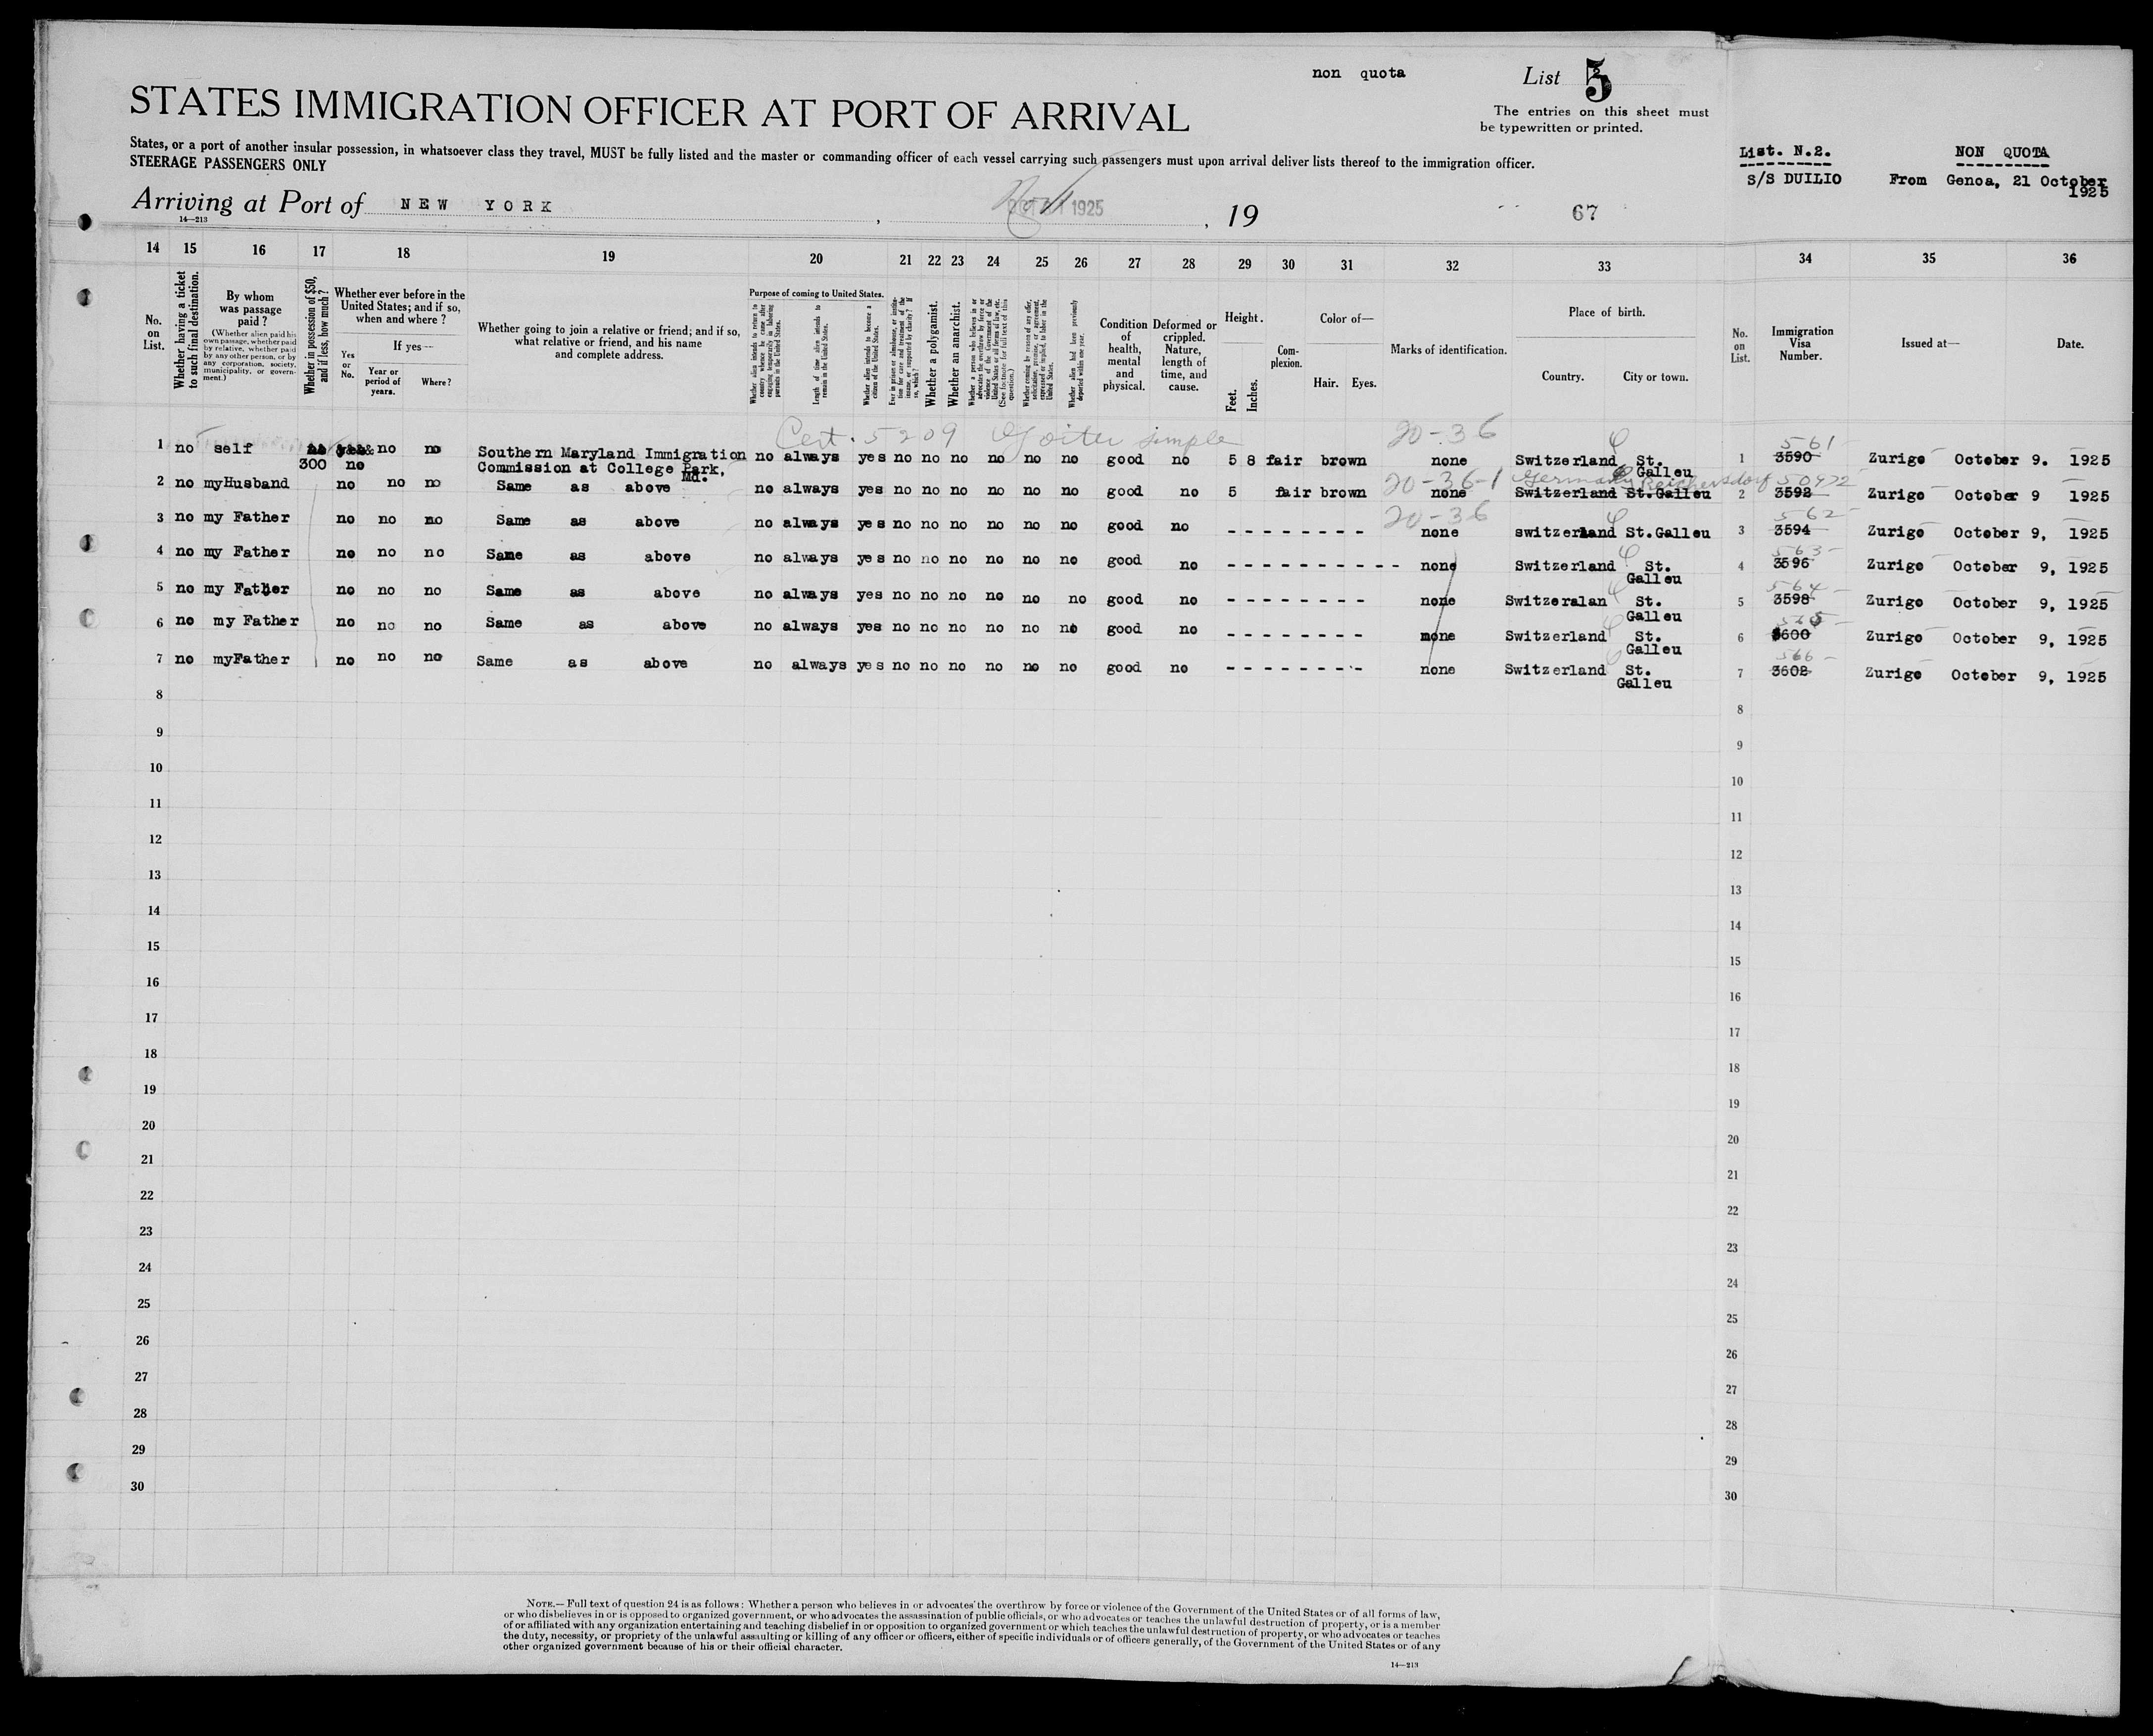 non quota
List 5
STATES IMMIGRATION OFFICER AT PORT OF ARRIVAL
The entries on this sheet must
be typewritten or printed.
States, or a port of another insular possession, in whatsoever class they travel, MUST be fully listed and the master or commanding officer of each vessel carrying such passengers must upon arrival deliver lists thereof to the immigration officer.
STEERAGE PASSENGERS ONLY
List. N.2. NON QUOTA
S/S DUILIO From Genoa, 21 October
1925
Arriving at Port of NEW YORK , 1925 , 19 67
14—213
14 15 16 17 18 19 20 21 22 23 24 25 26 27 28 29 30 31 32 33 34 35 36
No. on List.
Whether having a ticket to such final destination.
By whom was passage paid?
(Whether alien paid his own passage, whether paid by relative, whether paid by any other person, or by any corporation, society, municipality, or government.)
Whether in possession of $50, and if less, how much?
Whether ever before in the United States; and if so, when and where?
Yes or No.
If yes—
Year or period of years.
Where?
Whether going to join a relative or friend; and if so, what relative or friend, and his name and complete address.
Purpose of coming to United States.
Whether alien intends to return to country whence he came after engaging temporarily in laboring pursuits in the United States.
Length of time alien intends to remain in the United States.
Whether alien intends to become a citizen of the United States.
Ever in prison or almshouse, or institution for care and treatment of the insane, or supported by charity? If so, which?
Whether a polygamist.
Whether an anarchist.
Whether a person who believes in or advocates the overthrow by force or violence of the Government of the United States or all forms of law, etc. (See footnote for full text of this question.)
Whether coming by reason of any offer, solicitation, promise, or agreement, expressed or implied, to labor in the United States.
Whether alien had been previously deported within one year.
Condition of health, mental and physical.
Deformed or crippled. Nature, length of time, and cause.
Height.
Feet. Inches.
Complexion.
Color of—
Hair. Eyes.
Marks of identification.
Place of birth.
Country. City or town.
No. on List.
Immigration Visa Number.
Issued at—
Date.
Cert. 5209 Goiter simple 20-36 561
1 no self no no no Southern Maryland Immigration no always yes no no no no no no good no 5 8 fair brown none Switzerland St. 1 3590 Zurigo October 9. 1925
300 no Commission at College Park, Galleu
Md. 20-36-1 Germany Reichersdorf 50472
2 no myHusband no no no Same as above no always yes no no no no no no good no 5 fair brown none Switzerland St.Galleu 2 3592 Zurigo October 9 1925
20-36 562
3 no my Father no no no Same as above no always yes no no no no no no good no - - - - - - - - none switzerland St.Galleu 3 3594 Zurigo October 9, 1925
563
4 no my Father no no no Same as above no always yes no no no no no no good no - - - - - - - - - - none Switzerland St. 4 3596 Zurigo October 9, 1925
Galleu 564
5 no my Father no no no Same as above no always yes no no no no no no good no - - - - - - - - none Switzeralan St. 5 3598 Zurigo October 9, 1925
Galleu 565
6 no my Father no no no Same as above no always yes no no no no no no good no - - - - - - - - none Switzerland St. 6 3600 Zurigo October 9, 1925
Galleu 566
7 no myFather no no no Same as above no always yes no no no no no no good no - - - - - - - - none Switzerland St. 7 3602 Zurigo October 9, 1925
Galleu
8 8
9 9
10 10
11 11
12 12
13 13
14 14
15 15
16 16
17 17
18 18
19 19
20 20
21 21
22 22
23 23
24 24
25 25
26 26
27 27
28 28
29 29
30 30
NOTE.—Full text of question 24 is as follows: Whether a person who believes in or advocates the overthrow by force or violence of the Government of the United States or of all forms of law,
or who disbelieves in or is opposed to organized government, or who advocates the assassination of public officials, or who advocates or teaches the unlawful destruction of property, or is a member
of or affiliated with any organization entertaining and teaching disbelief in or opposition to organized government or which teaches the unlawful destruction of property, or who advocates or teaches
the duty, necessity, or propriety of the unlawful assaulting or killing of any officer or officers, either of specific individuals or of officers generally, of the Government of the United States or of any
other organized government because of his or their official character.
14—213